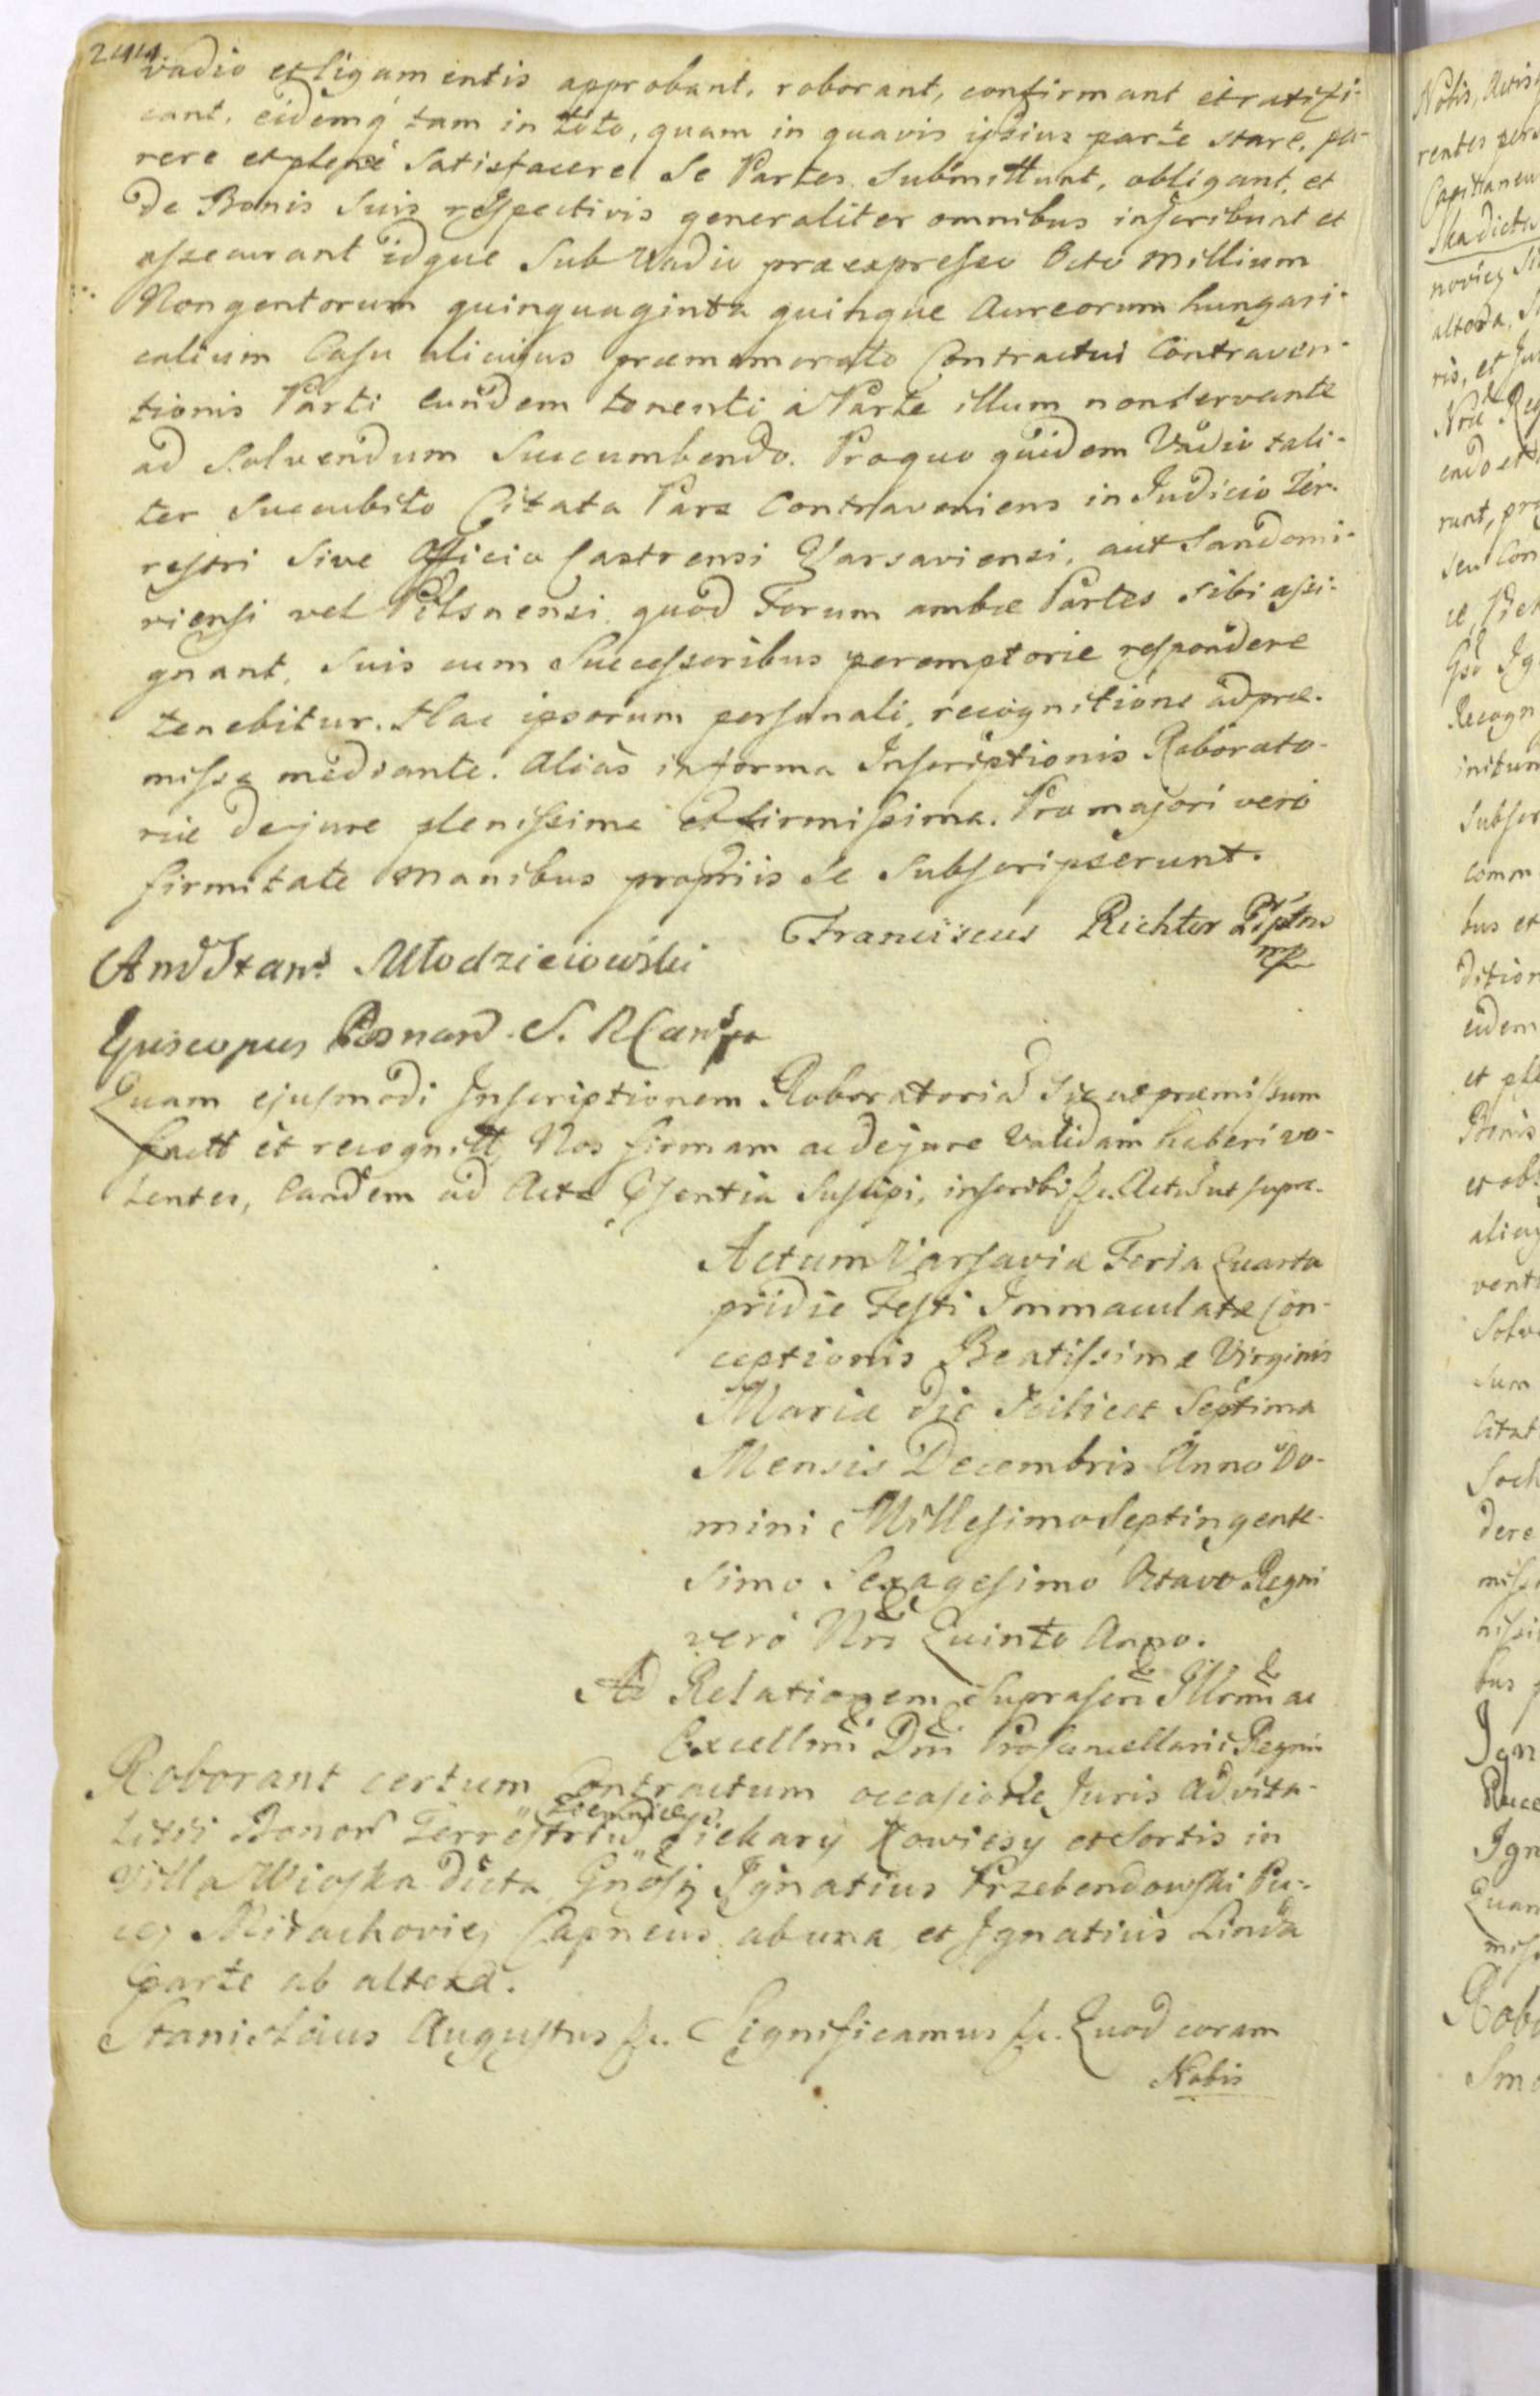 244
vadio et ligamentis approbant, roborant, confirmant et ratifi-
cant, eidemq tam in toto, quam in quavis ipsius parte stare, pa-
rere et plene Satisfacere Se Partes Submittunt, obligant, et
de Bonis Suis respectivis generaliter omnibus inscribunt et
assecurant idque Sub Vadio praeexpresso Octo Millium
Nongentorum quinquaginta quinque Aureorum hungari-
calium Casu alicujus praememorato Contractui Contraven-
tionis Parti eundem tenenti a Parte illum non servante
ad Solvendum Succumbendo. Pro quo quidem Vadio tali-
ter Succubito Citata Pars Contraveniens in Judicio Ter-
restri Sive Officio Castrensi Varsaviensi, aut Sandomi-
riensi vel Pilsnensi quod Forum ambae Partes Sibi assi-
gnant, Suis cum Successoribus peremptorie respondere
tenebitur. Hac ipsorum personali, recognitione ad prae-
missa mediante. Alias in forma Inscriptionis Roborato-
riae de jure plenissima et firmissima. Pro majori vero
firmitate manibus propriis Se Subscripserunt.
Franciscus Richter
mp
And Stans Młodzieiowski
Episcopus Posnan. S. R Canr
Quam ejusmodi Inscriptionem Roboratoria Sic ut praemissum
factt et recognitt Nos firmam ac de jure Validam haberi vo-
lentes, eandem ad Acta Psentia Suscipi, inscribi &c. Actu ut supra.
Actum Varsaviae Feria Quarta
pridie Festi Immaculatae Con-
ceptionis Beatissimae Virginis
Mariae die Scilicet Septima
Mensis Decembris Anno Do-
mini Millesimo Septingente-
simo Sexagesimo Octavo Regni
vero Nri Quinto Anno.
Ad Relationem Suprascri Illrmi ac
Excellmi Dni Procancellarii Regni
Roborant certum Contractum occasione Juris Advita-
litii Bonor Terrestriu Piekary Kowiesy et Sortis in
Villa Wioska dicta Gnosi Ignatius Przebendowski Pu-
cej Mirachoviej Capneus ab una, et Ignatius Linda
parte ab altera.
Stanislaus Augustus &c. Significamus &c. Quod coram
Nobis